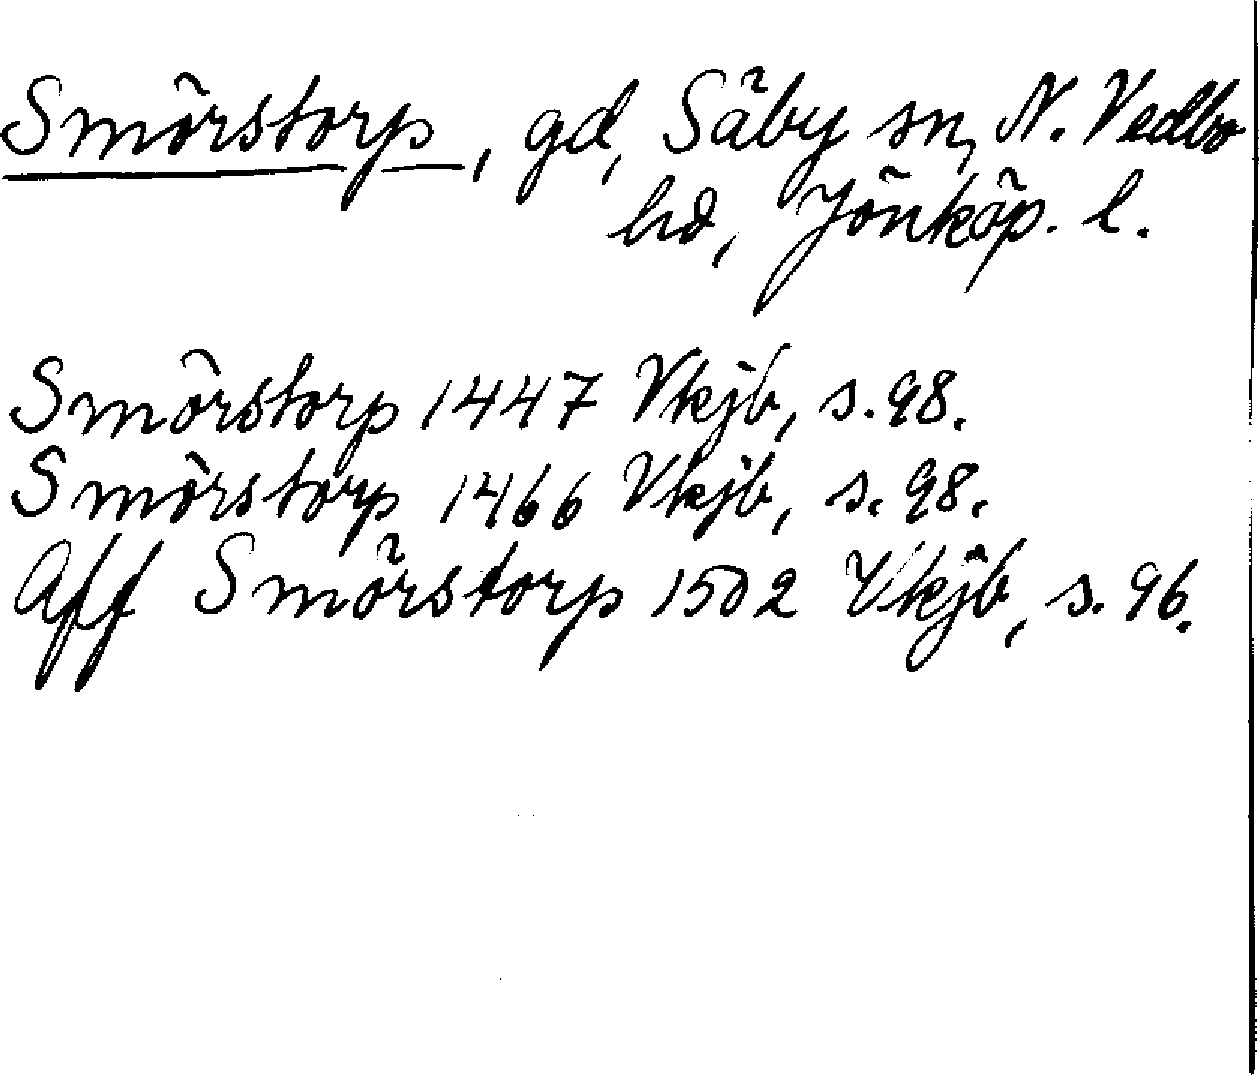 Smörstorp, gd, Säby sn, N. Vedbo
hd, Jönköp. l.
Smörstorp 1447 Vkjb, s. 98.
Smörstorp 1466 Vkjb, s. 98.
Aff Smörstorp 1502 Vkjb, s. 96.